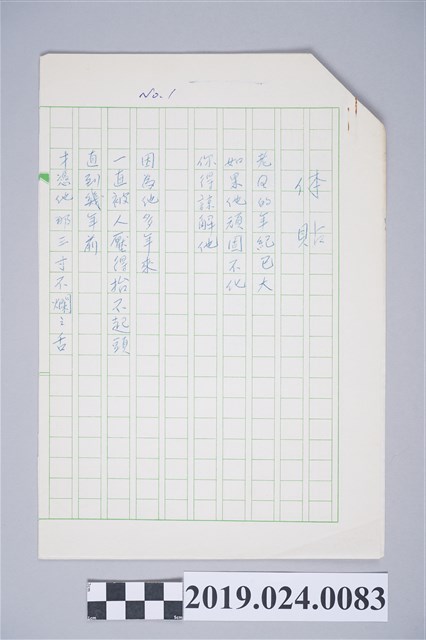 No. 1
体貼
老Q的年紀已大
如果他頑固不化
你得諒解他
因為他多年來
一直被人壓得抬不起頭
直到幾年前
才憑他那三寸不爛之舌
2019.024.0083